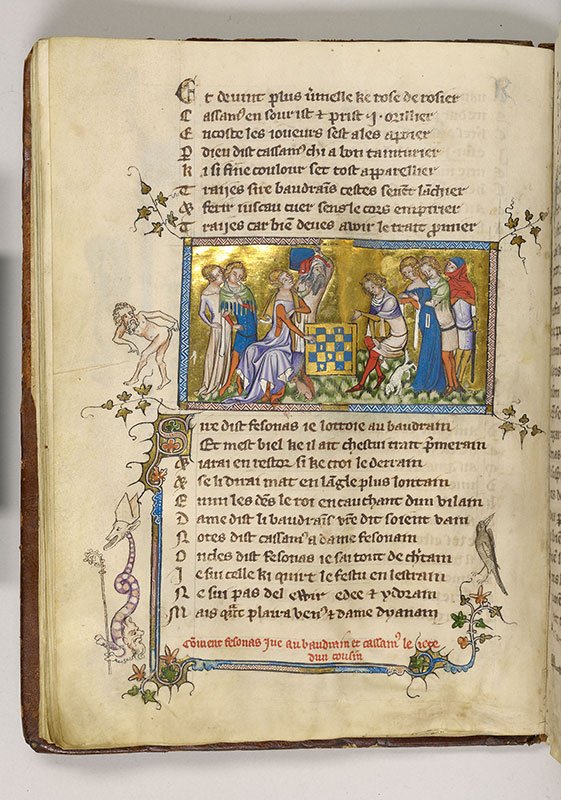 Et devint plus vmelle ke rose de rosier
Cassam9 en sourist & prist .i. orillier
Encoste les ioueurs sest ales apoier
Dieu dist cassam9 chi a bon tainturier
Ki si fine coulour set tost apparellier
Traijes sire baudrains cestes
ferir cuer sens le cors empirier
Traijes car bien deves avoir le trait primer
Sire dist fesonas ie lottoie au baudrain
Et mest biel ke il ait chestui trait premerain
iarai en restor si ke croi le derrain
se li dirai mat en langle plus lontain
Enmi les dens le roi en cauchant dun vilain
Dame dist li baudrains vre dit soient vain
Notes dist cassam9 a dame fesonain
Oncles dist fesonas ie sai tout de chertain
Je sui celle ki quirt le festu en lestrain
Ne sui pas del edee & ydorain
Mais qnt plaira ven9 & dame dyanain
Coment fesonas iue au baudrain et cassam9 le iete
dun cousin